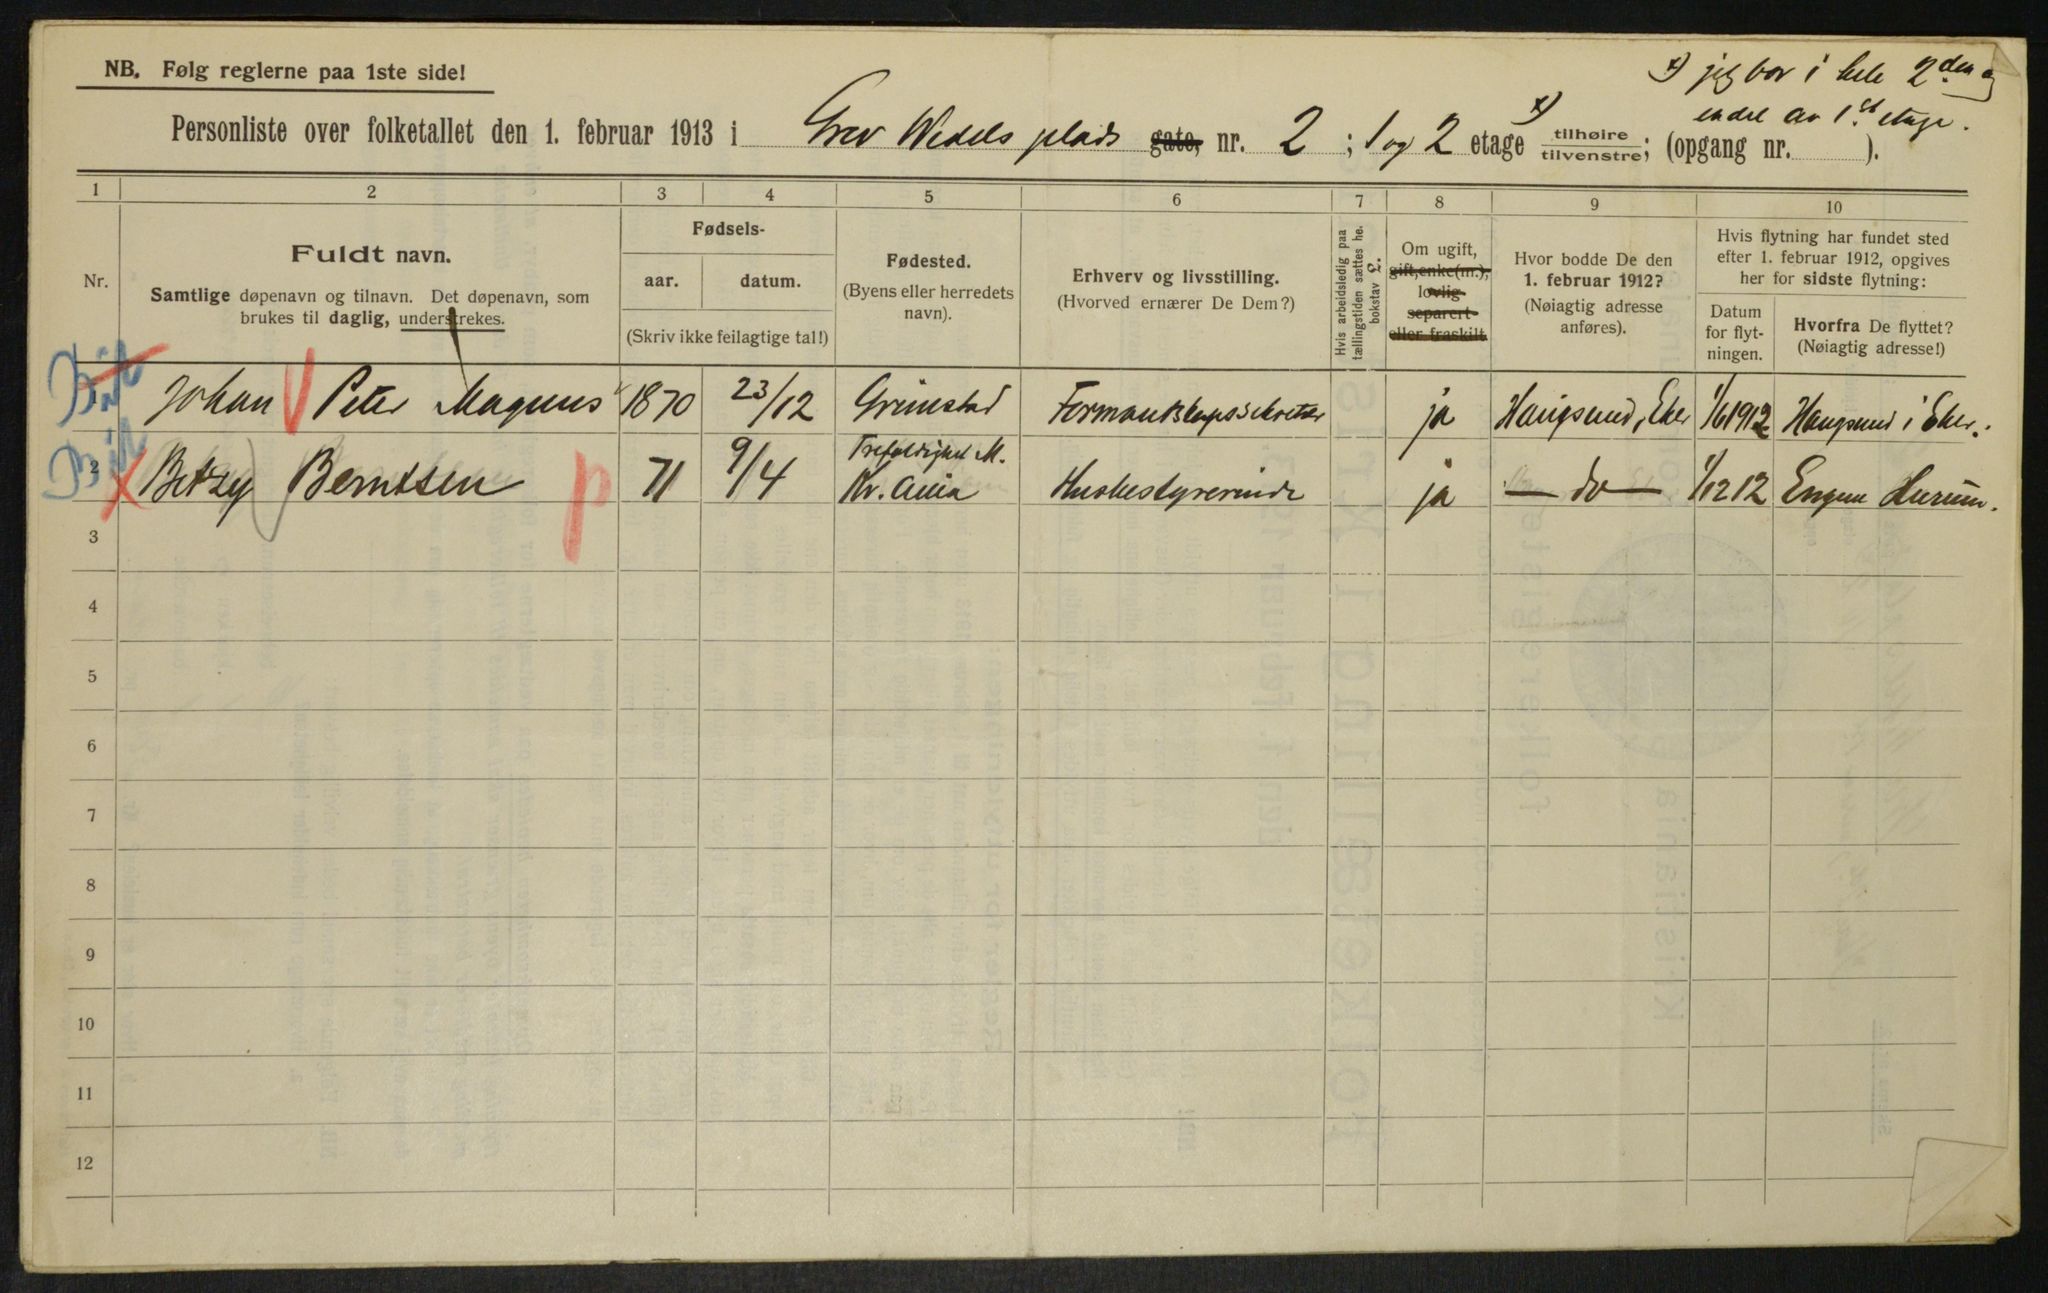 NB. Følg reglerne paa 1ste side!
x) jeg bor i hele 2den og
endel av 1st etage.
Personliste over folketallet den 1. februar 1913 i Grev Wedels plads gate, nr. 2 ; 1 og 2 etage x) tilhøire tilvenstre; (opgang nr. ).
1 2 3 4 5 6 7 8 9 10
Nr.
Fuldt navn.
Samtlige døpenavn og tilnavn. Det døpenavn, som
brukes til daglig, understrekes.
Fødsels-
aar. datum.
(Skriv ikke feilagtige tal!)
Fødested.
(Byens eller herredets
navn).
Erhverv og livsstilling.
(Hvorved ernærer De Dem?)
Hvis arbeidsledig paa
tællingstiden sættes he.
bokstav L.
Om ugift,
gift, enke(m.),
lovlig
separert
eller fraskilt
Hvor bodde De den
1. februar 1912?
(Nøiagtig adresse
anføres).
Hvis flytning har fundet sted
efter 1. februar 1912, opgives
her for sidste flytning:
Datum
for flyt-
ningen.
Hvorfra De flyttet?
(Nøiagtig adresse!)
1 Johan Peter Magnus 1870 23/12 Grimstad Formandskapssekretær ja Haugsund, Eker 1/6 1912 Haugsund i Eker.
2 Betzy Berntsen 71 9/4 Trefoldighet M. Kr.ania Husbestyrerinde ja — do — 1/12 12 Hurum.
3
4
5
6
7
8
9
10
11
12